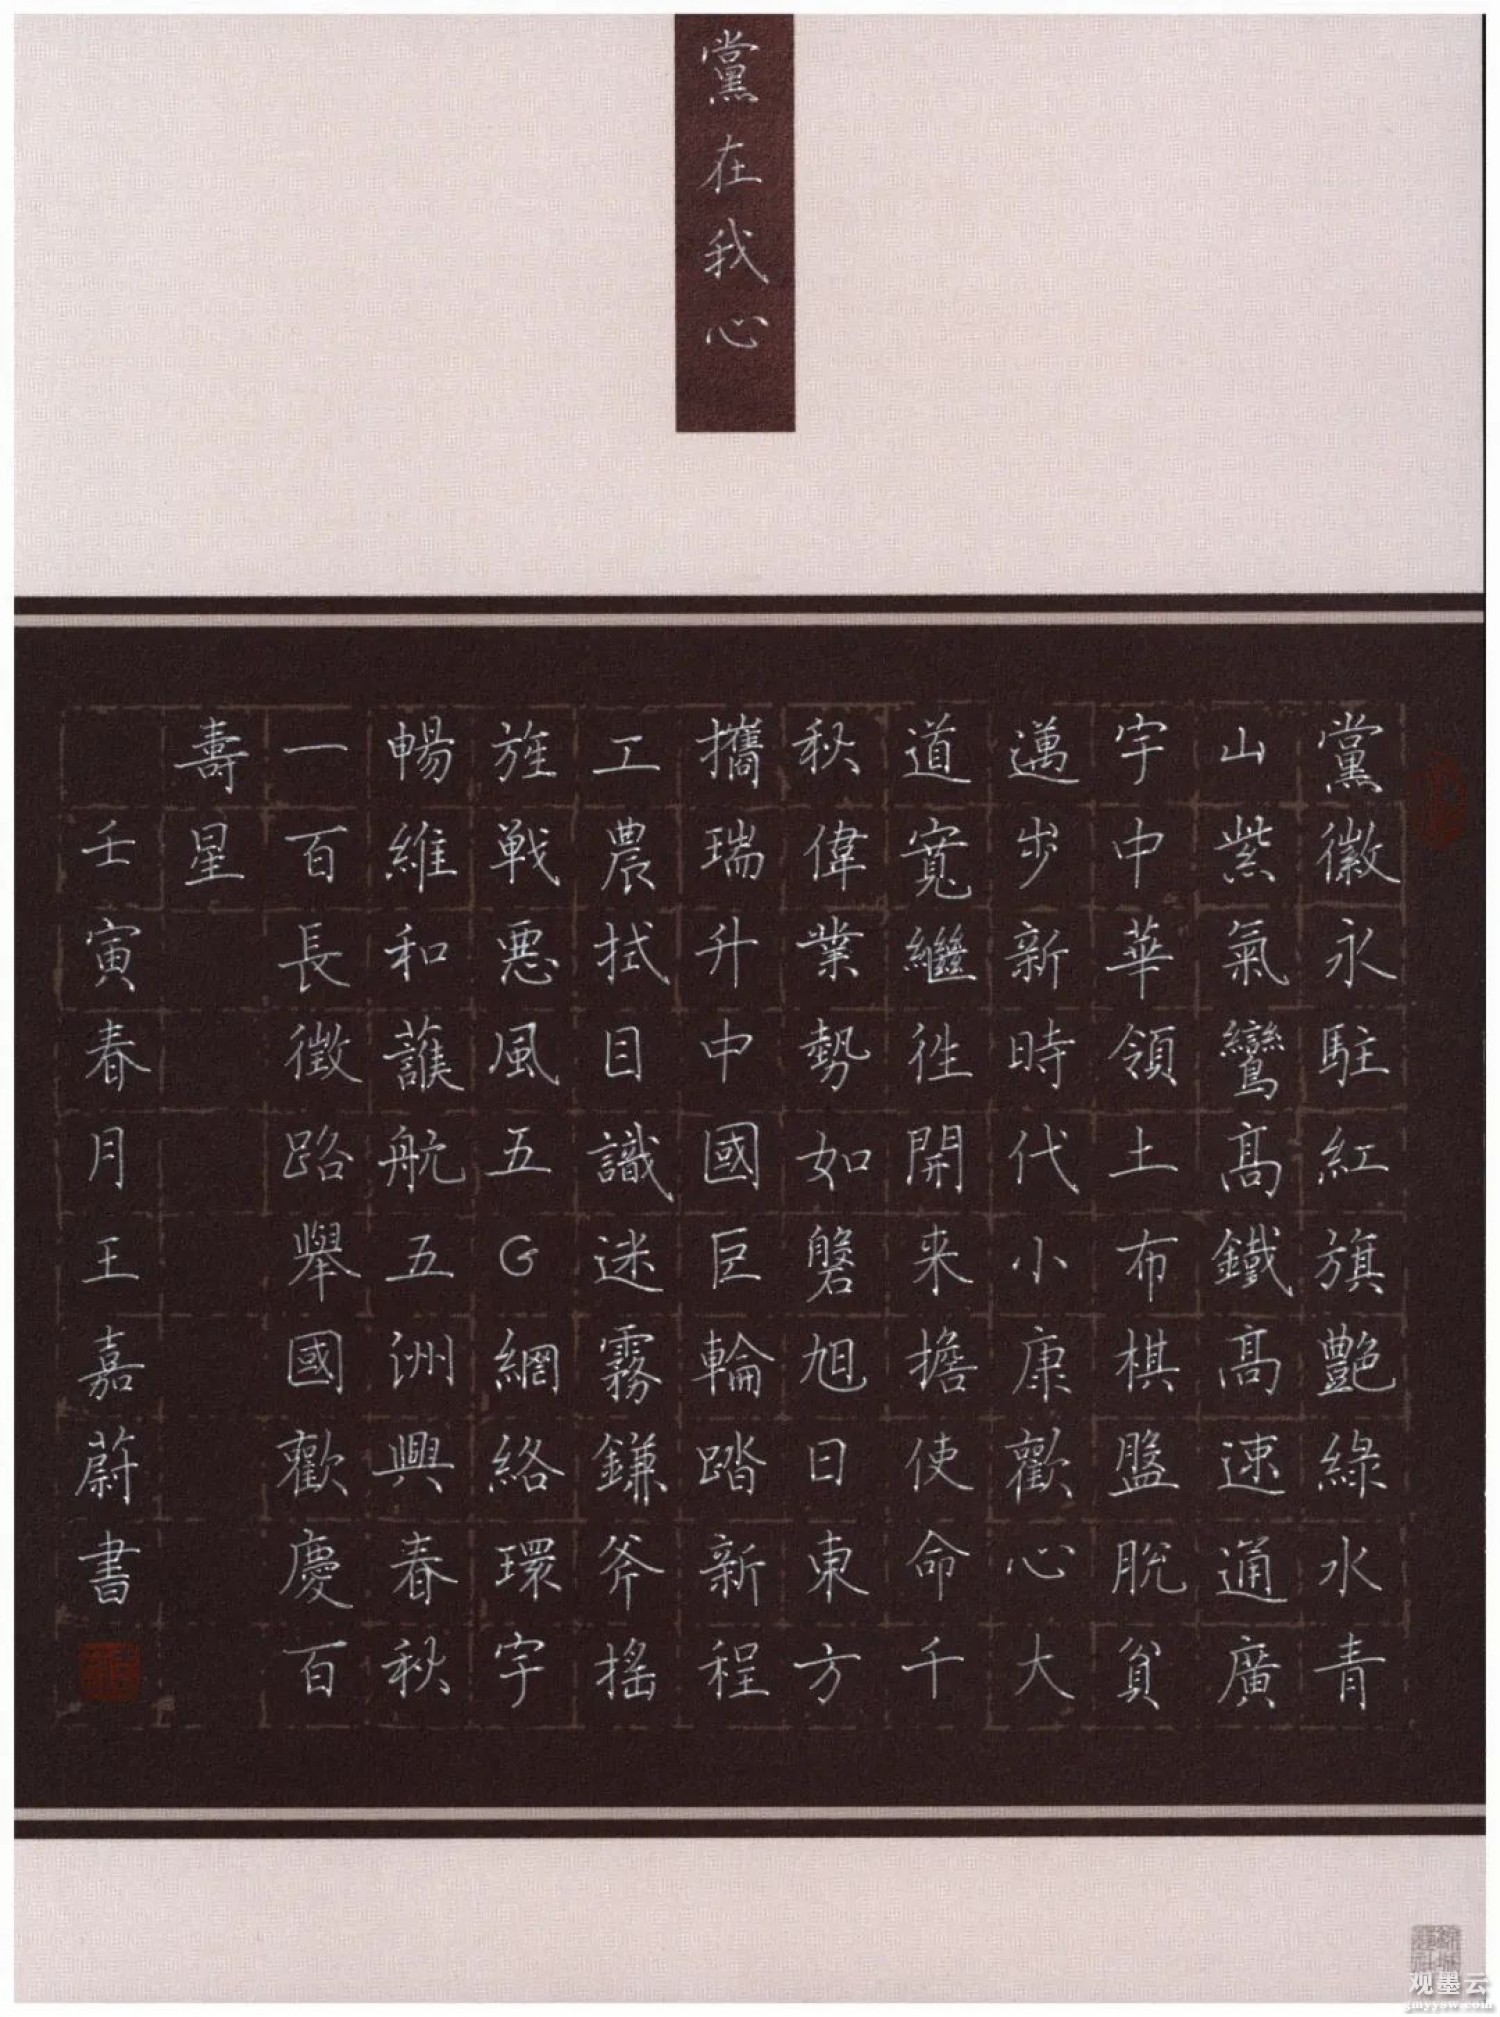 黨在我心
黨徽永駐紅旗艷綠水青
山紫氣鸞高鐵高速通廣
宇中華領土布棋盤脫貧
邁步新時代小康歡心大
道寬繼往開来擔使命千
秋偉業勢如磐旭日東方
攜瑞升中國巨輪踏新程
工農拭目識迷霧鎌斧搖
旌戰惡風五G網絡環宇
暢維和護航五洲興春秋
一百長徵路舉國歡慶百
壽星
壬寅春月王嘉蔚書
观墨云
gmyysw.com